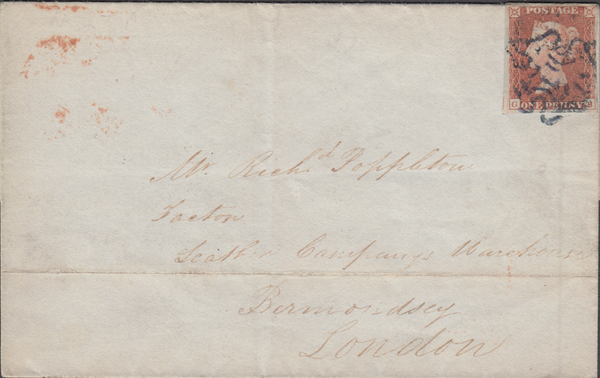 POSTAGE
G ONE PENNY B
Mr. Rich^d Poppleton
Factor
Leather Company's Warehouse
Bermondsey
London